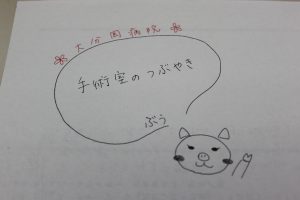 大分岡病院
手術室のつぶやき
ぶぅ